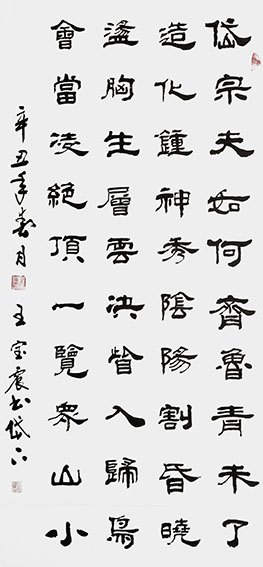 岱宗夫如何齊魯青未了
造化鍾神秀陰陽割昏曉
盪胸生層雲決眥入歸鳥
會當凌絕頂一覽眾山小
辛丑年春月王宝宸书岱下